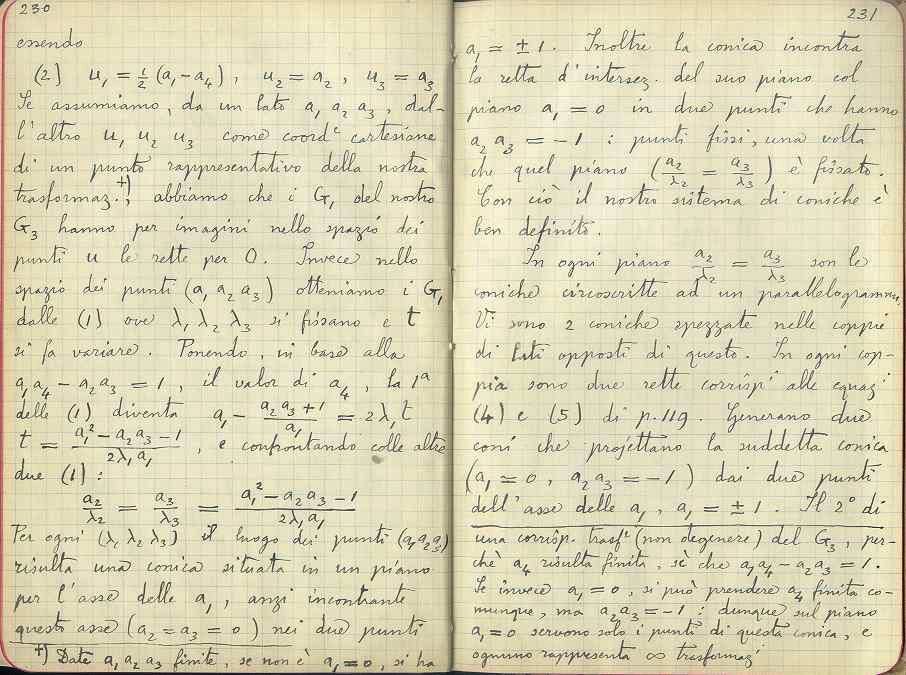 230
essendo
(2) u₁ = ½ (a₁ - a₄), u₂ = a₂, u₃ = a₃
Se assumiamo, da un lato a₁ a₂ a₃, dal-
l'altro u₁ u₂ u₃ come coordᵉ cartesiane
di un punto rappresentativo della nostra
trasformaz. +), abbiamo che i G₁ del nostro
G₃ hanno per imagini nello spazio dei
punti u le rette per O. Invece nello
spazio dei punti (a₁ a₂ a₃) otteniamo i G₁
dalle (1) ove λ₁ λ₂ λ₃ si fissano e t
si fa variare. Ponendo, in base alla
a₁a₄ - a₂a₃ = 1, il valor di a₄, la 1ª
delle (1) diventa a₁ - (a₂a₃+1)/a₁ = 2λ₁t
t = (a₁² - a₂a₃ - 1)/(2λ₁a₁), e confrontando colle altre
due (1):
a₂/λ₂ = a₃/λ₃ = (a₁² - a₂a₃ - 1)/(2λ₁a₁)
Per ogni (λ₁ λ₂ λ₃) il luogo dei punti (a₁a₂a₃)
risulta una conica situata in un piano
per l'asse delle a₁, anzi incontrante
questo asse (a₂ = a₃ = 0) nei due punti
+) Date a₁ a₂ a₃ finite, se non è a₁ = 0, si ha
231
a₁ = ± 1. Inoltre la conica incontra
la retta d'intersez. del suo piano col
piano a₁ = 0 in due punti che hanno
a₂a₃ = -1 : punti fissi, una volta
che quel piano (a₂/λ₂ = a₃/λ₃) è fissato.
Con ciò il nostro sistema di coniche è
ben definito.
In ogni piano a₂/λ₂ = a₃/λ₃ son le
coniche circoscritte ad un parallelogrammo,
Vi sono 2 coniche spezzate nelle coppie
di lati opposti di questo. In ogni cop-
pia sono due rette corrispⁱ alle equazⁱ
(4) e (5) di p. 119. Generano due
coni che projettano la suddetta conica
(a₁ = 0, a₂a₃ = -1) dai due punti
dell'asse delle a₁, a₁ = ± 1. Il 2° di
una corrisp. trasfᵉ (non degenere) del G₃, per-
chè a₄ risulta finita, sì che a₁a₄ - a₂a₃ = 1.
Se invece a₁ = 0, si può prendere a₄ finita co-
munque, ma a₂a₃ = -1 : dunque sul piano
a₁ = 0 servono solo i punti di questa conica, e
ognuno rappresenta ∞ trasformazⁱ